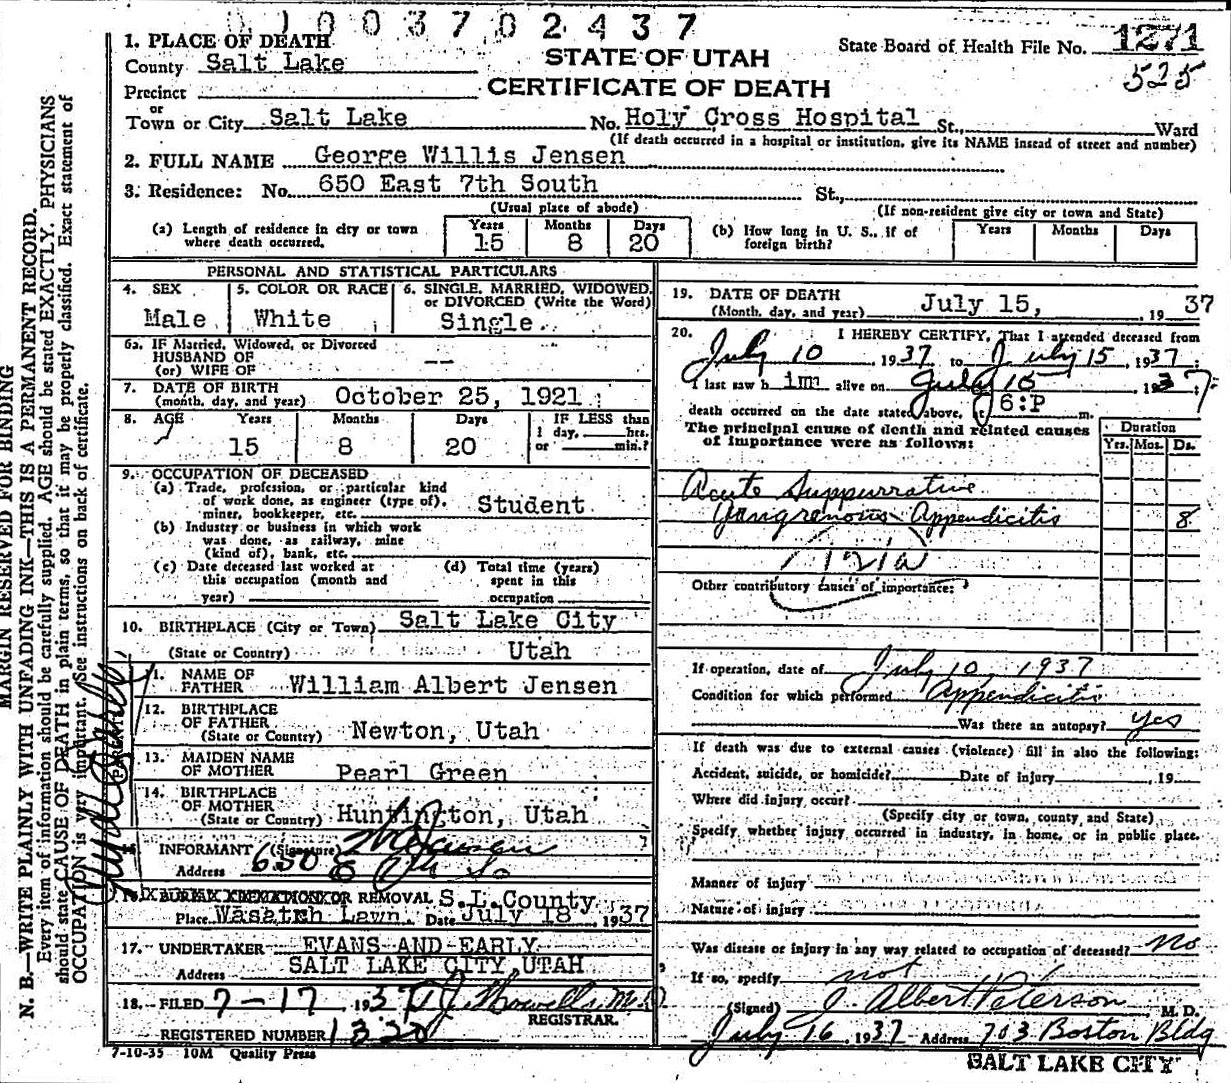 01003702437
1. PLACE OF DEATH
STATE OF UTAH
CERTIFICATE OF DEATH
State Board of Health File No. 1271
525
County Salt Lake
Precinct
or
Town or City Salt Lake No. Holy Cross Hospital St., Ward
(If death occurred in a hospital or institution, give its NAME instead of street and number)
2. FULL NAME George Willis Jensen
3. Residence: No. 650 East 7th South St.,
(Usual place of abode) (If non-resident give city or town and State)
(a) Length of residence in city or town where death occurred. Years 15 Months 8 Days 20
(b) How long in U. S., if of foreign birth? Years Months Days
PERSONAL AND STATISTICAL PARTICULARS
4. SEX Male
5. COLOR OR RACE White
6. SINGLE, MARRIED, WIDOWED, or DIVORCED (Write the Word) Single
6a. IF Married, Widowed, or Divorced
HUSBAND OF
(or) WIFE OF --
7. DATE OF BIRTH
(month, day, and year) October 25, 1921
8. AGE Years 15 Months 8 Days 20
IF LESS than
1 day, hrs.
or min.?
9. OCCUPATION OF DECEASED
(a) Trade, profession, or particular kind
of work done, as engineer (type of),
miner, bookkeeper, etc. Student
(b) Industry or business in which work
was done, as railway, mine
(kind of), bank, etc.
(c) Date deceased last worked at
this occupation (month and
year)
(d) Total time (years)
spent in this
occupation
10. BIRTHPLACE (City or Town) Salt Lake City
(State or Country) Utah
11. NAME OF
FATHER William Albert Jensen
12. BIRTHPLACE
OF FATHER
(State or Country) Newton, Utah
13. MAIDEN NAME
OF MOTHER Pearl Green
14. BIRTHPLACE
OF MOTHER
(State or Country) Huntington, Utah
INFORMANT (Signature)
Address 650 E 7th So
BURIAL CREMATION OR REMOVAL S.L.County
Place Wasatch Lawn Date July 18, 1937
17. UNDERTAKER EVANS AND EARLY
Address SALT LAKE CITY UTAH
18. FILED 7-17 1937
REGISTRAR.
REGISTERED NUMBER 1320
7-10-35 10M Quality Press
19. DATE OF DEATH
(Month, day, and year) July 15, 1937
20. I HEREBY CERTIFY, That I attended deceased from
July 10, 1937 to July 15, 1937
I last saw him alive on July 15 1937
death occurred on the date stated above, at 6:P m.
The principal cause of death and related causes
of importance were as follows:
Duration
Yrs. Mos. Ds.
Acute Suppurrative
Gangrenous Appendicitis 8
121a
Other contributory causes of importance:
If operation, date of July 10, 1937
Condition for which performed Appendicitis
Was there an autopsy? yes
If death was due to external causes (violence) fill in also the following:
Accident, suicide, or homicide? Date of injury , 19
Where did injury occur?
(Specify city or town, county, and State)
Specify whether injury occurred in industry, in home, or in public place.
Manner of injury
Nature of injury
Was disease or injury in any way related to occupation of deceased? No
If so, specify not
(Signed) J. Albert Peterson M. D.
July 16, 1937 Address 703 Boston Bldg
SALT LAKE CITY
MARGIN RESERVED FOR BINDING
N. B.—WRITE PLAINLY WITH UNFADING INK—THIS IS A PERMANENT RECORD.
Every item of information should be carefully supplied. AGE should be stated EXACTLY. PHYSICIANS
should state CAUSE OF DEATH in plain terms, so that it may be properly classified. Exact statement of
OCCUPATION is very important. See instructions on back of certificate.